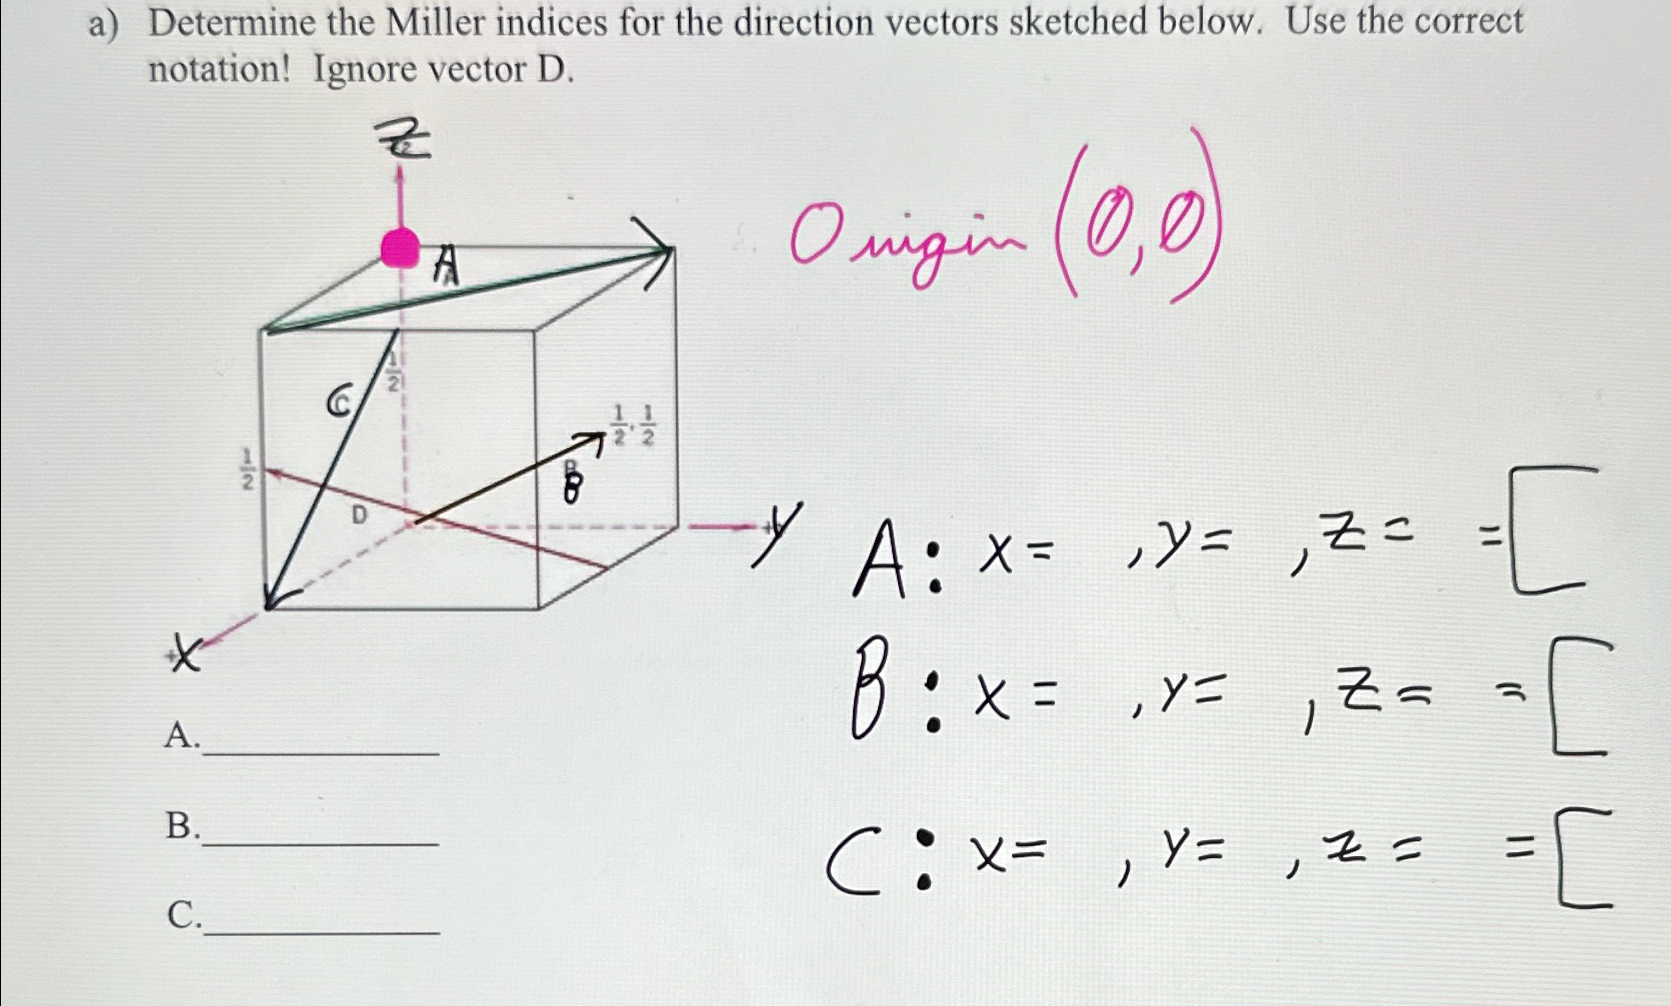 a) Determine the Miller indices for the direction vectors sketched below. Use the correct
notation! Ignore vector D.
Z
Origin (0,0)
A
C
1/2
1/2, 1/2
1/2
B
D
+Y
+X
A: x= , y= , z= =[
B: x= , y= , z= =[
C: x= , y= , z= =[
A.
B.
C.